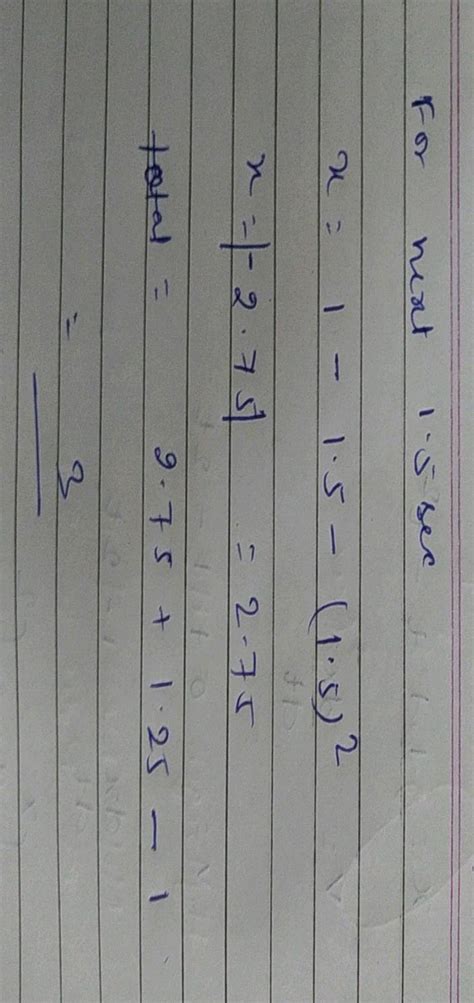 For next 1.5 sec
x = 1 - 1.5 - (1.5)²
x = |-2.75| = 2.75
total = 2.75 + 1.25 - 1
= 3